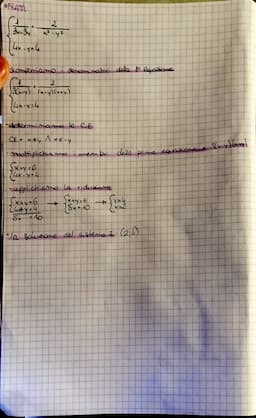 •FRATTI
{1/3x-3y = 2/x²-y²
4x-y=4
•scomponiamo i denominatori della 1ª equazione
{1/3(x-y) = 2/(x-y)(x+y)
4x-y=4
•determiniamo le C.E.
CE= x≠y ∧ x≠-y
•moltiplichiamo i membri della prima equazione
{x+y=6
4x-y=4
•applichiamo la riduzione
{x+y=6 → {x+y=6 → {
4x-y=4 5x=10 x=2
5x =10
•la soluzione del sistema è